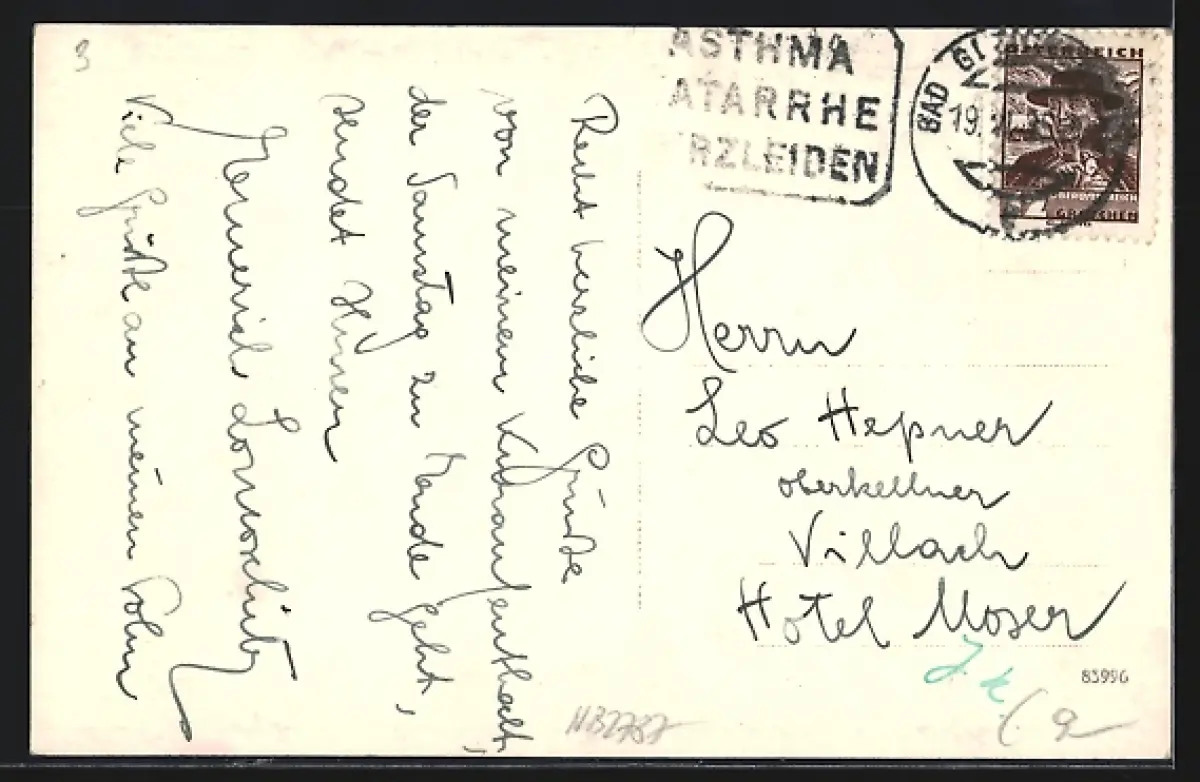 3
Recht herzliche Grüße
von meinem Kuraufenthalt,
der Samstag zu Ende geht,
sendet Ihnen
Viele Grüße an meinen Sohn
ASTHMA
ATARRHE
RZLEIDEN
BAD GI
19.
ÖSTERREICH
GROSCHEN
Herrn
Leo Hepner
Oberkellner
Villach
Hotel Moser
83996